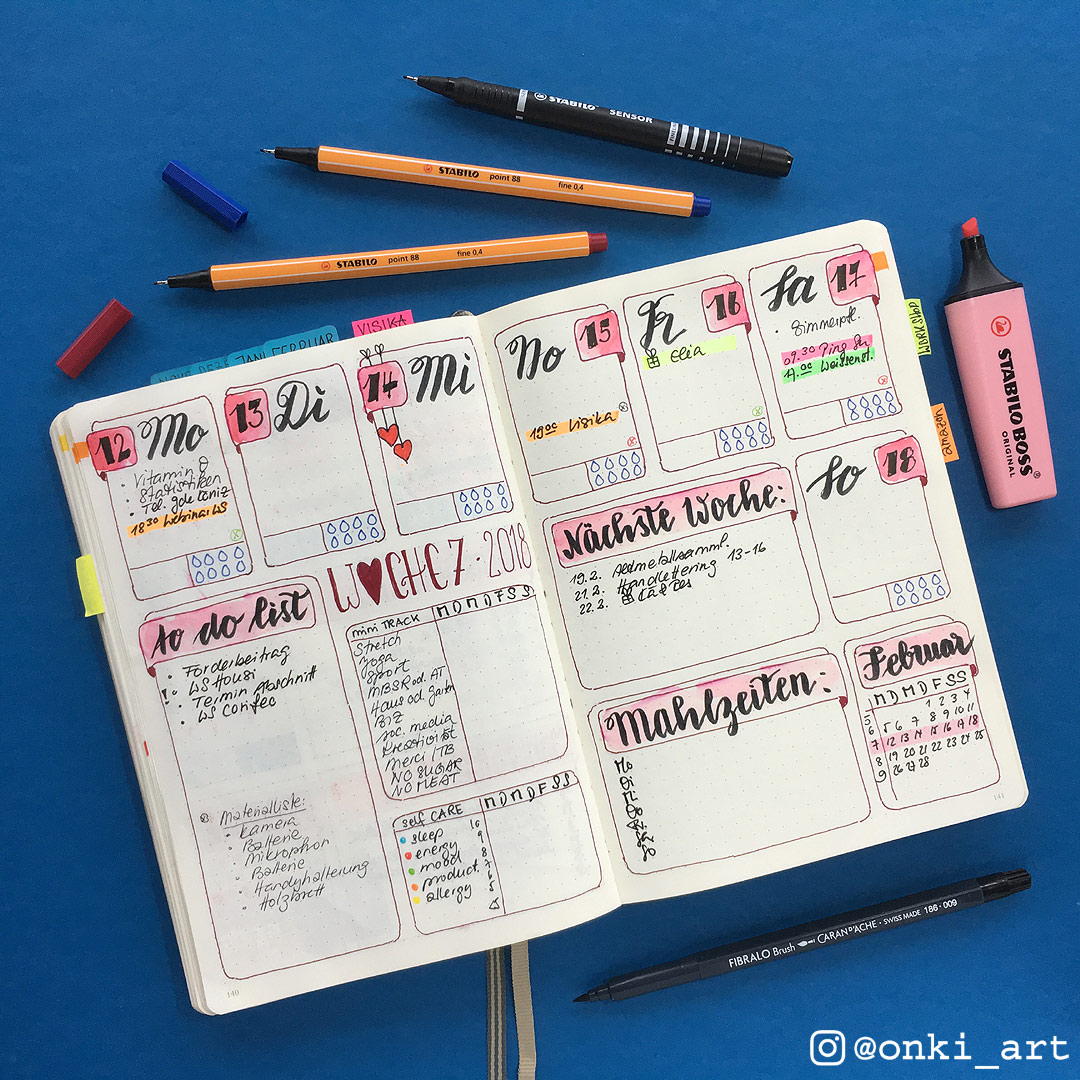 STABILO SENSOR
STABILO point 88 fine 0,4
STABILO point 88 fine 0,4
STABILO BOSS
ORIGINAL
VISIKA
JAN FEBRUAR
WORKSHOP
amazon
12 Mo
• Vitamin D
• Statistiken
• Tel.
18 30 Webinar WS
13 Di
14 Mi
WOCHE 7 · 2018
To do list
• Förderbeitrag
• WS Housi
! • Termin Abschnitt
• WS Confec
Materialliste:
• Kamera
• Batterie
• Mikrophon
• Batterie
• Handyhalterung
• Holzbrett
mini TRACK M D M D F S S
Stretch
yoga
Sport
MBSR od. AT
Haus od. Garten
BIZ
soc. media
Kreativität
Merci / TB
NO SUGAR
NO MEAT
self CARE M D M D F S S
sleep 10
energy 9
mood 8
product. 7
allergy
140
Do 15
19 00 Visika
Fr 16
Elia
Sa 17
09.30
17.00 Weissenst.
So 18
Nächste Woche:
19.2. Altmetallsamml.
21.2. Handlettering 13-16
22.2.
Mahlzeiten:
Mo
Di
Mi
Do
Fr
Sa
So
Februar
M D M D F S S
5 1 2 3 4
6 5 6 7 8 9 10 11
7 12 13 14 15 16 17 18
8 19 20 21 22 23 24 25
9 26 27 28
141
FIBRALO Brush CARAN D'ACHE · SWISS MADE 186 · 009
@onki_art